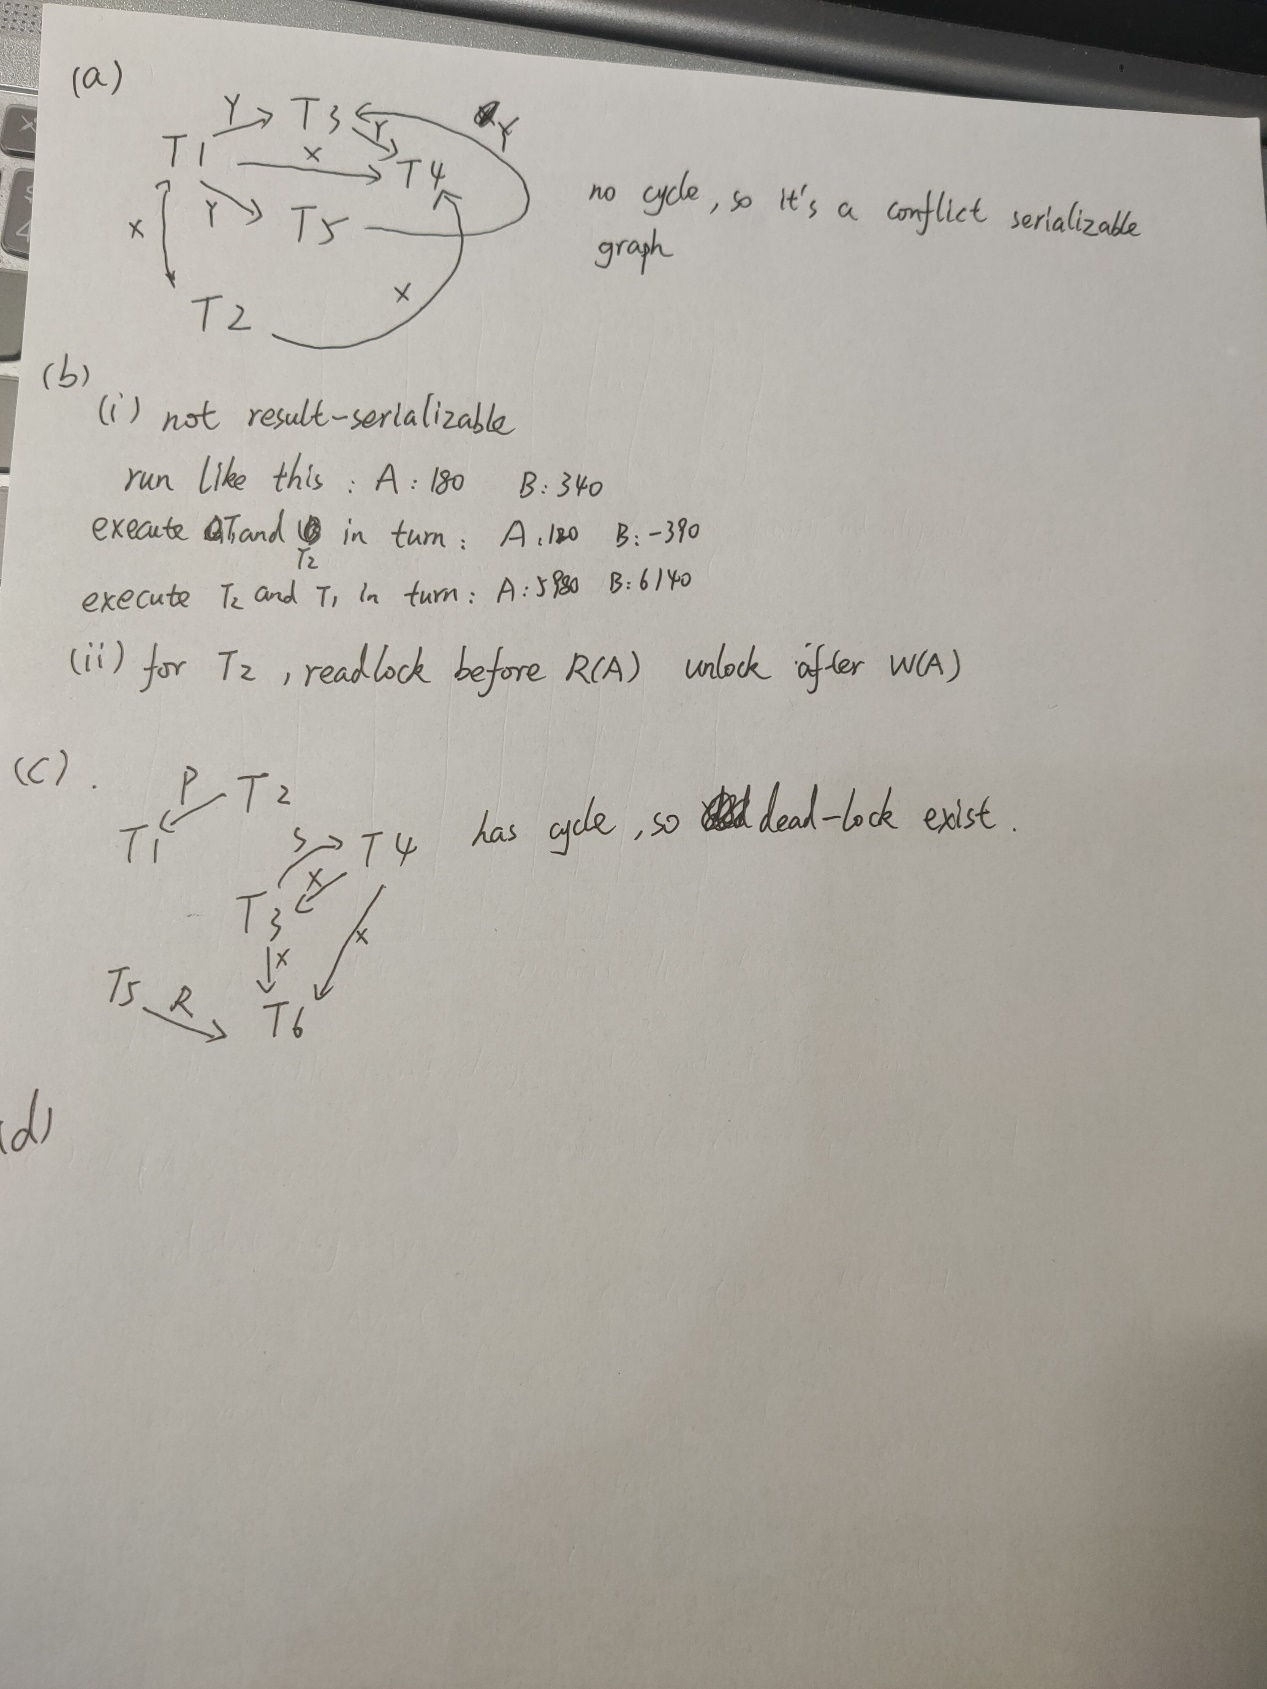 (a)
Y T3 Y Y
T1 X T4
X Y T5
T2 X
no cycle, so it's a conflict serializable
graph
(b)
(i) not result-serializable
run like this : A : 180 B : 340
execute T1 and T2 in turn : A : 180 B : -390
execute T2 and T1 in turn : A : 5980 B : 6140
(ii) for T2 , readlock before R(A) unlock after W(A)
(c) .
P T2
T1 S T4 has cycle , so dead-lock exist .
T3 X
X X
T5 R T6
(d)